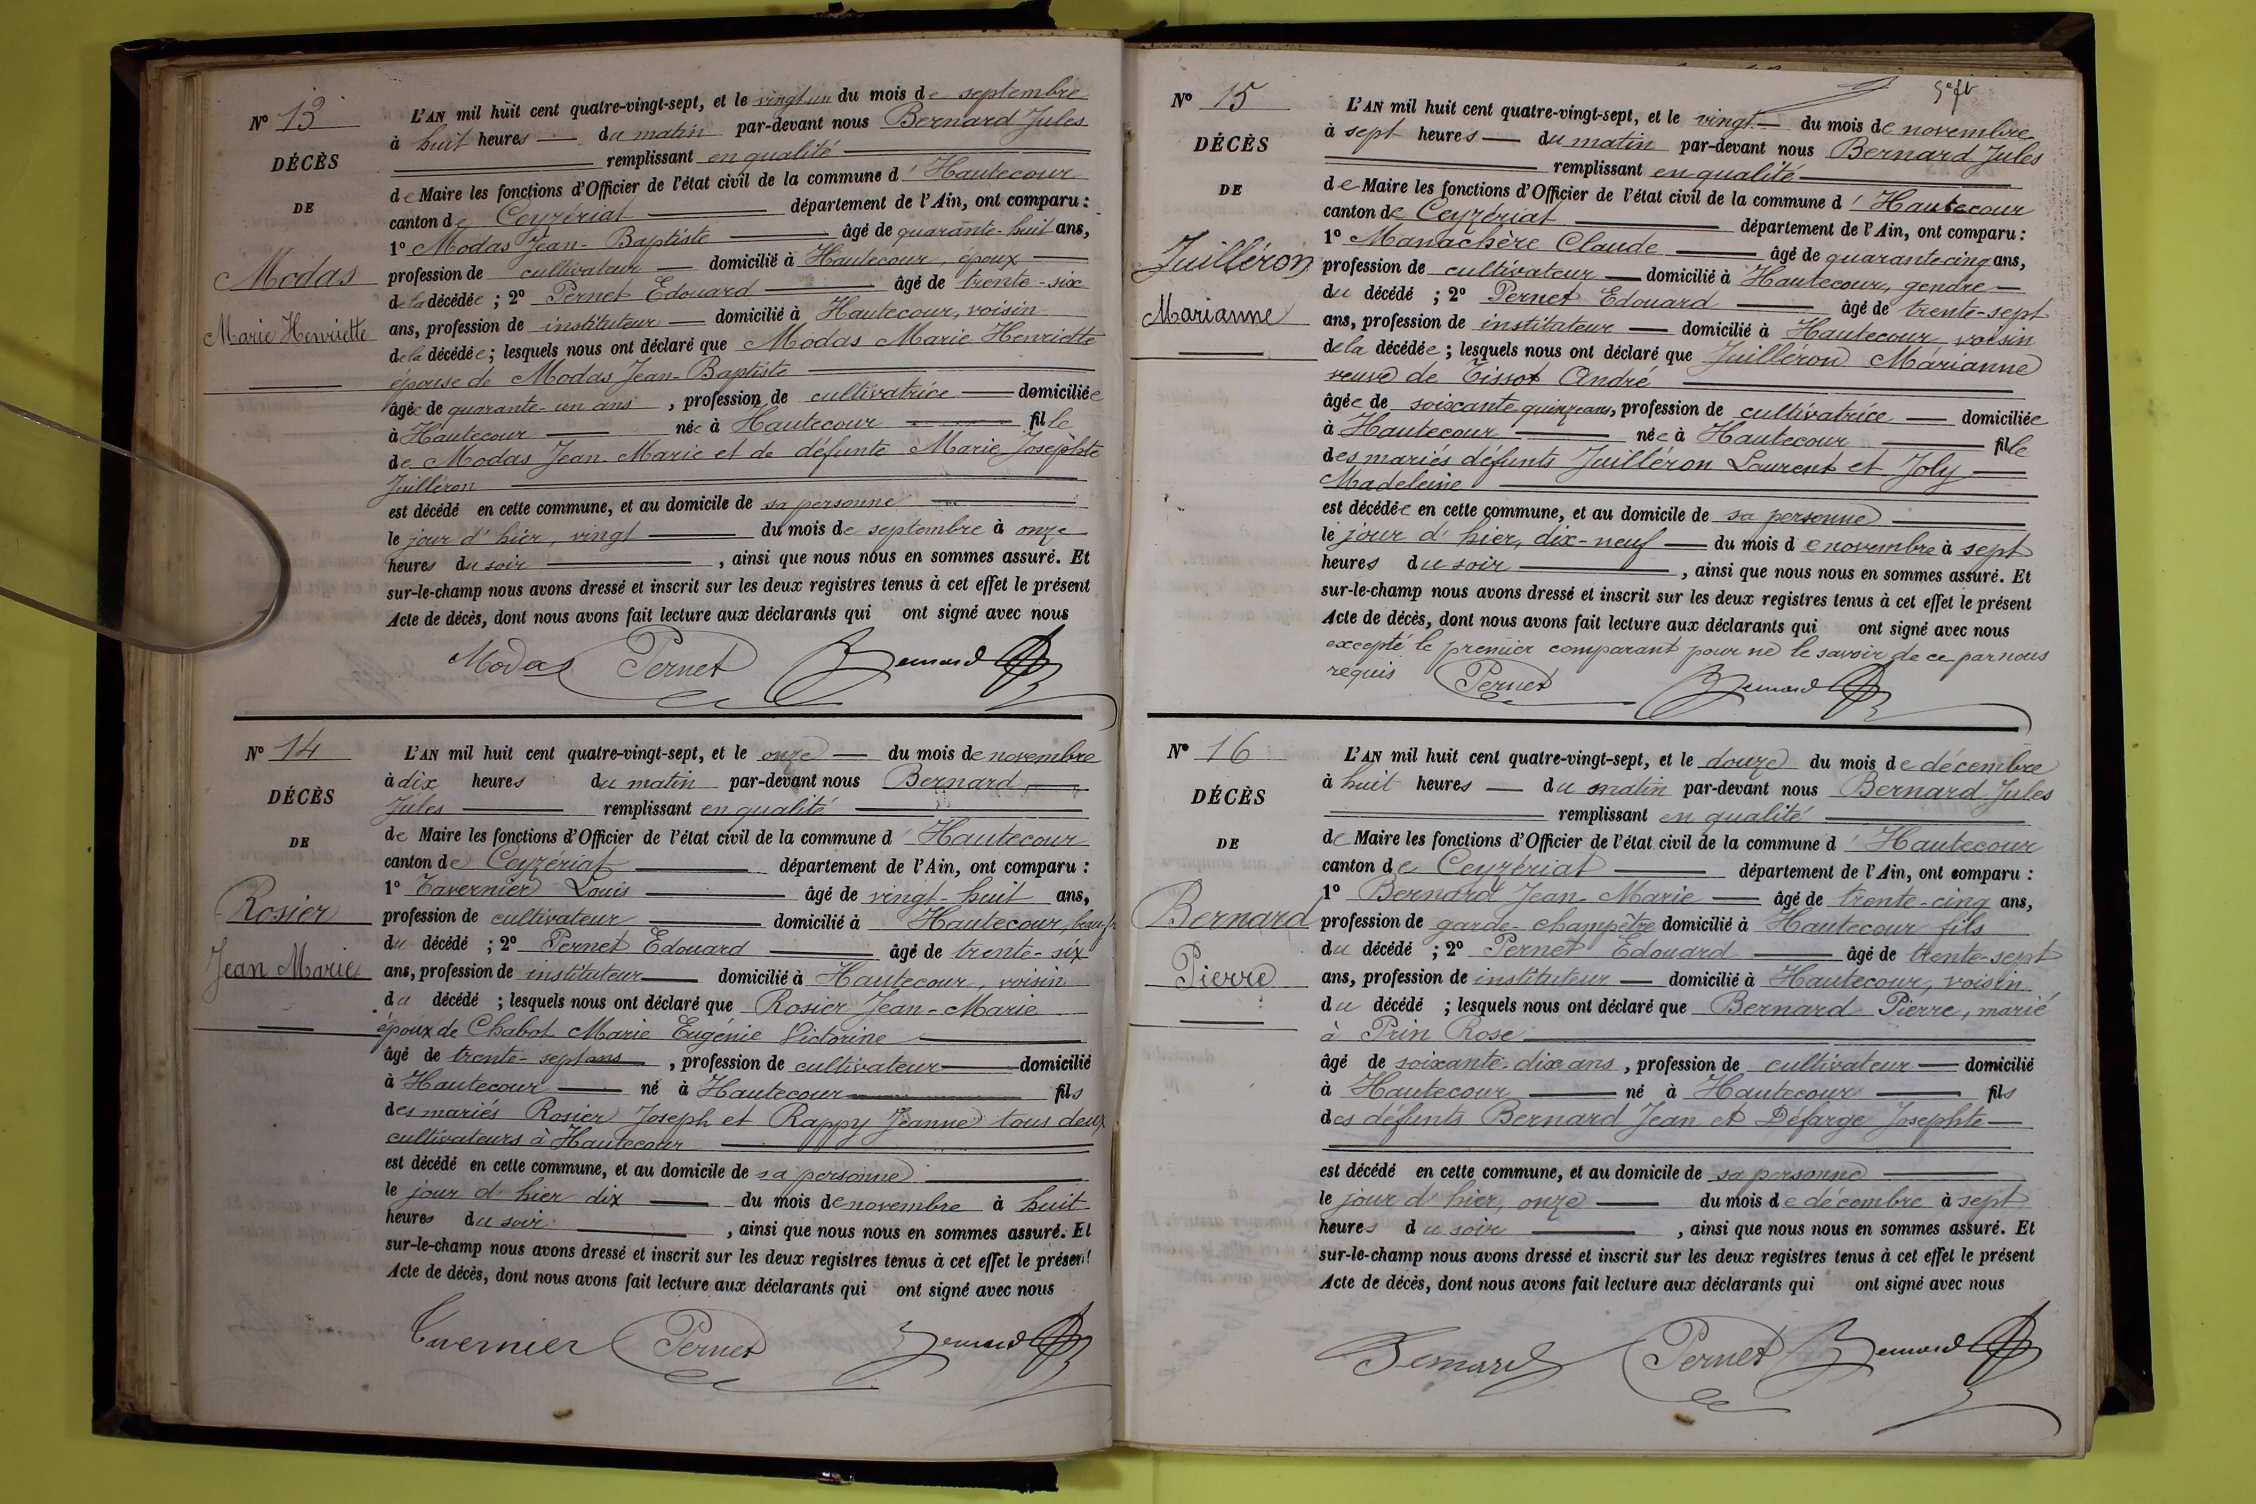 N° 13
DÉCÈS
DE
Modas
Marie Henriette
L'AN mil huit cent quatre-vingt-sept, et le vingt un du mois de septembre
à huit heures du matin par-devant nous Bernard Jules
remplissant en qualité
de Maire les fonctions d'Officier de l'état civil de la commune d'Hautecour
canton de Ceyzériat département de l'Ain, ont comparu :
1° Modas Jean-Baptiste âgé de quarante-huit ans,
profession de cultivateur domicilié à Hautecour, époux
de la décédée ; 2° Pernet Edouard âgé de trente-six
ans, profession de instituteur domicilié à Hautecour, voisin
de la décédée ; lesquels nous ont déclaré que Modas Marie Henriette
épouse de Modas Jean-Baptiste
âgée de quarante-un ans, profession de cultivatrice domiciliée
à Hautecour née à Hautecour fille
de Modas Jean Marie et de défunte Marie Josephte
Juilléron
est décédé en cette commune, et au domicile de sa personne
le jour d'hier, vingt du mois de septembre à onze
heures du soir, ainsi que nous nous en sommes assuré. Et
sur-le-champ nous avons dressé et inscrit sur les deux registres tenus à cet effet le présent
Acte de décès, dont nous avons fait lecture aux déclarants qui ont signé avec nous
Modas Pernet Bernard
N° 14
DÉCÈS
DE
Rosier
Jean Marie
L'AN mil huit cent quatre-vingt-sept, et le onze du mois de novembre
à dix heures du matin par-devant nous Bernard
Jules remplissant en qualité
de Maire les fonctions d'Officier de l'état civil de la commune d'Hautecour
canton de Ceyzériat département de l'Ain, ont comparu :
1° Tavernier Louis âgé de vingt-huit ans,
profession de cultivateur domicilié à Hautecour, beau-fr
du décédé ; 2° Pernet Edouard âgé de trente-six
ans, profession de instituteur domicilié à Hautecour, voisin
du décédé ; lesquels nous ont déclaré que Rosier Jean-Marie
époux de Chabot Marie Eugénie Victorine
âgé de trente-sept ans, profession de cultivateur domicilié
à Hautecour né à Hautecour fils
des mariés Rosier Joseph et Rappy Jeanne tous deux
cultivateurs à Hautecour
est décédé en cette commune, et au domicile de sa personne
le jour d'hier dix du mois de novembre à huit
heures du soir, ainsi que nous nous en sommes assuré. Et
sur-le-champ nous avons dressé et inscrit sur les deux registres tenus à cet effet le présent
Acte de décès, dont nous avons fait lecture aux déclarants qui ont signé avec nous
Tavernier Pernet Bernard
N° 15
DÉCÈS
DE
Juilléron
Marianne
L'AN mil huit cent quatre-vingt-sept, et le vingt du mois de novembre
à sept heures du matin par-devant nous Bernard Jules
remplissant en qualité
de Maire les fonctions d'Officier de l'état civil de la commune d'Hautecour
canton de Ceyzériat département de l'Ain, ont comparu :
1° Manachère Claude âgé de quarante cinq ans,
profession de cultivateur domicilié à Hautecour, gendre
du décédé ; 2° Pernet Edouard âgé de trente-sept
ans, profession de instituteur domicilié à Hautecour voisin
de la décédée ; lesquels nous ont déclaré que Juilléron Marianne
veuve de Tissot André
âgée de soixante quinze ans, profession de cultivatrice domiciliée
à Hautecour née à Hautecour fille
des mariés défunts Juilléron Laurent et Joly
Madeleine
est décédée en cette commune, et au domicile de sa personne
le jour d'hier, dix-neuf du mois de novembre à sept
heures du soir, ainsi que nous nous en sommes assuré. Et
sur-le-champ nous avons dressé et inscrit sur les deux registres tenus à cet effet le présent
Acte de décès, dont nous avons fait lecture aux déclarants qui ont signé avec nous
excepté le premier comparant pour ne le savoir de ce par nous
requis Pernet Bernard
N° 16
DÉCÈS
DE
Bernard
Pierre
L'AN mil huit cent quatre-vingt-sept, et le douze du mois de décembre
à huit heures du matin par-devant nous Bernard Jules
remplissant en qualité
de Maire les fonctions d'Officier de l'état civil de la commune d'Hautecour
canton de Ceyzériat département de l'Ain, ont comparu :
1° Bernard Jean-Marie âgé de trente-cinq ans,
profession de garde-champêtre domicilié à Hautecour fils
du décédé ; 2° Pernet Edouard âgé de trente-sept
ans, profession de instituteur domicilié à Hautecour, voisin
du décédé ; lesquels nous ont déclaré que Bernard Pierre, marié
à Prin Rose
âgé de soixante-dix ans, profession de cultivateur domicilié
à Hautecour né à Hautecour fils
des défunts Bernard Jean et Défarge Josephte
est décédé en cette commune, et au domicile de sa personne
le jour d'hier, onze du mois de décembre à sept
heures du soir, ainsi que nous nous en sommes assuré. Et
sur-le-champ nous avons dressé et inscrit sur les deux registres tenus à cet effet le présent
Acte de décès, dont nous avons fait lecture aux déclarants qui ont signé avec nous
Bernard Pernet Bernard